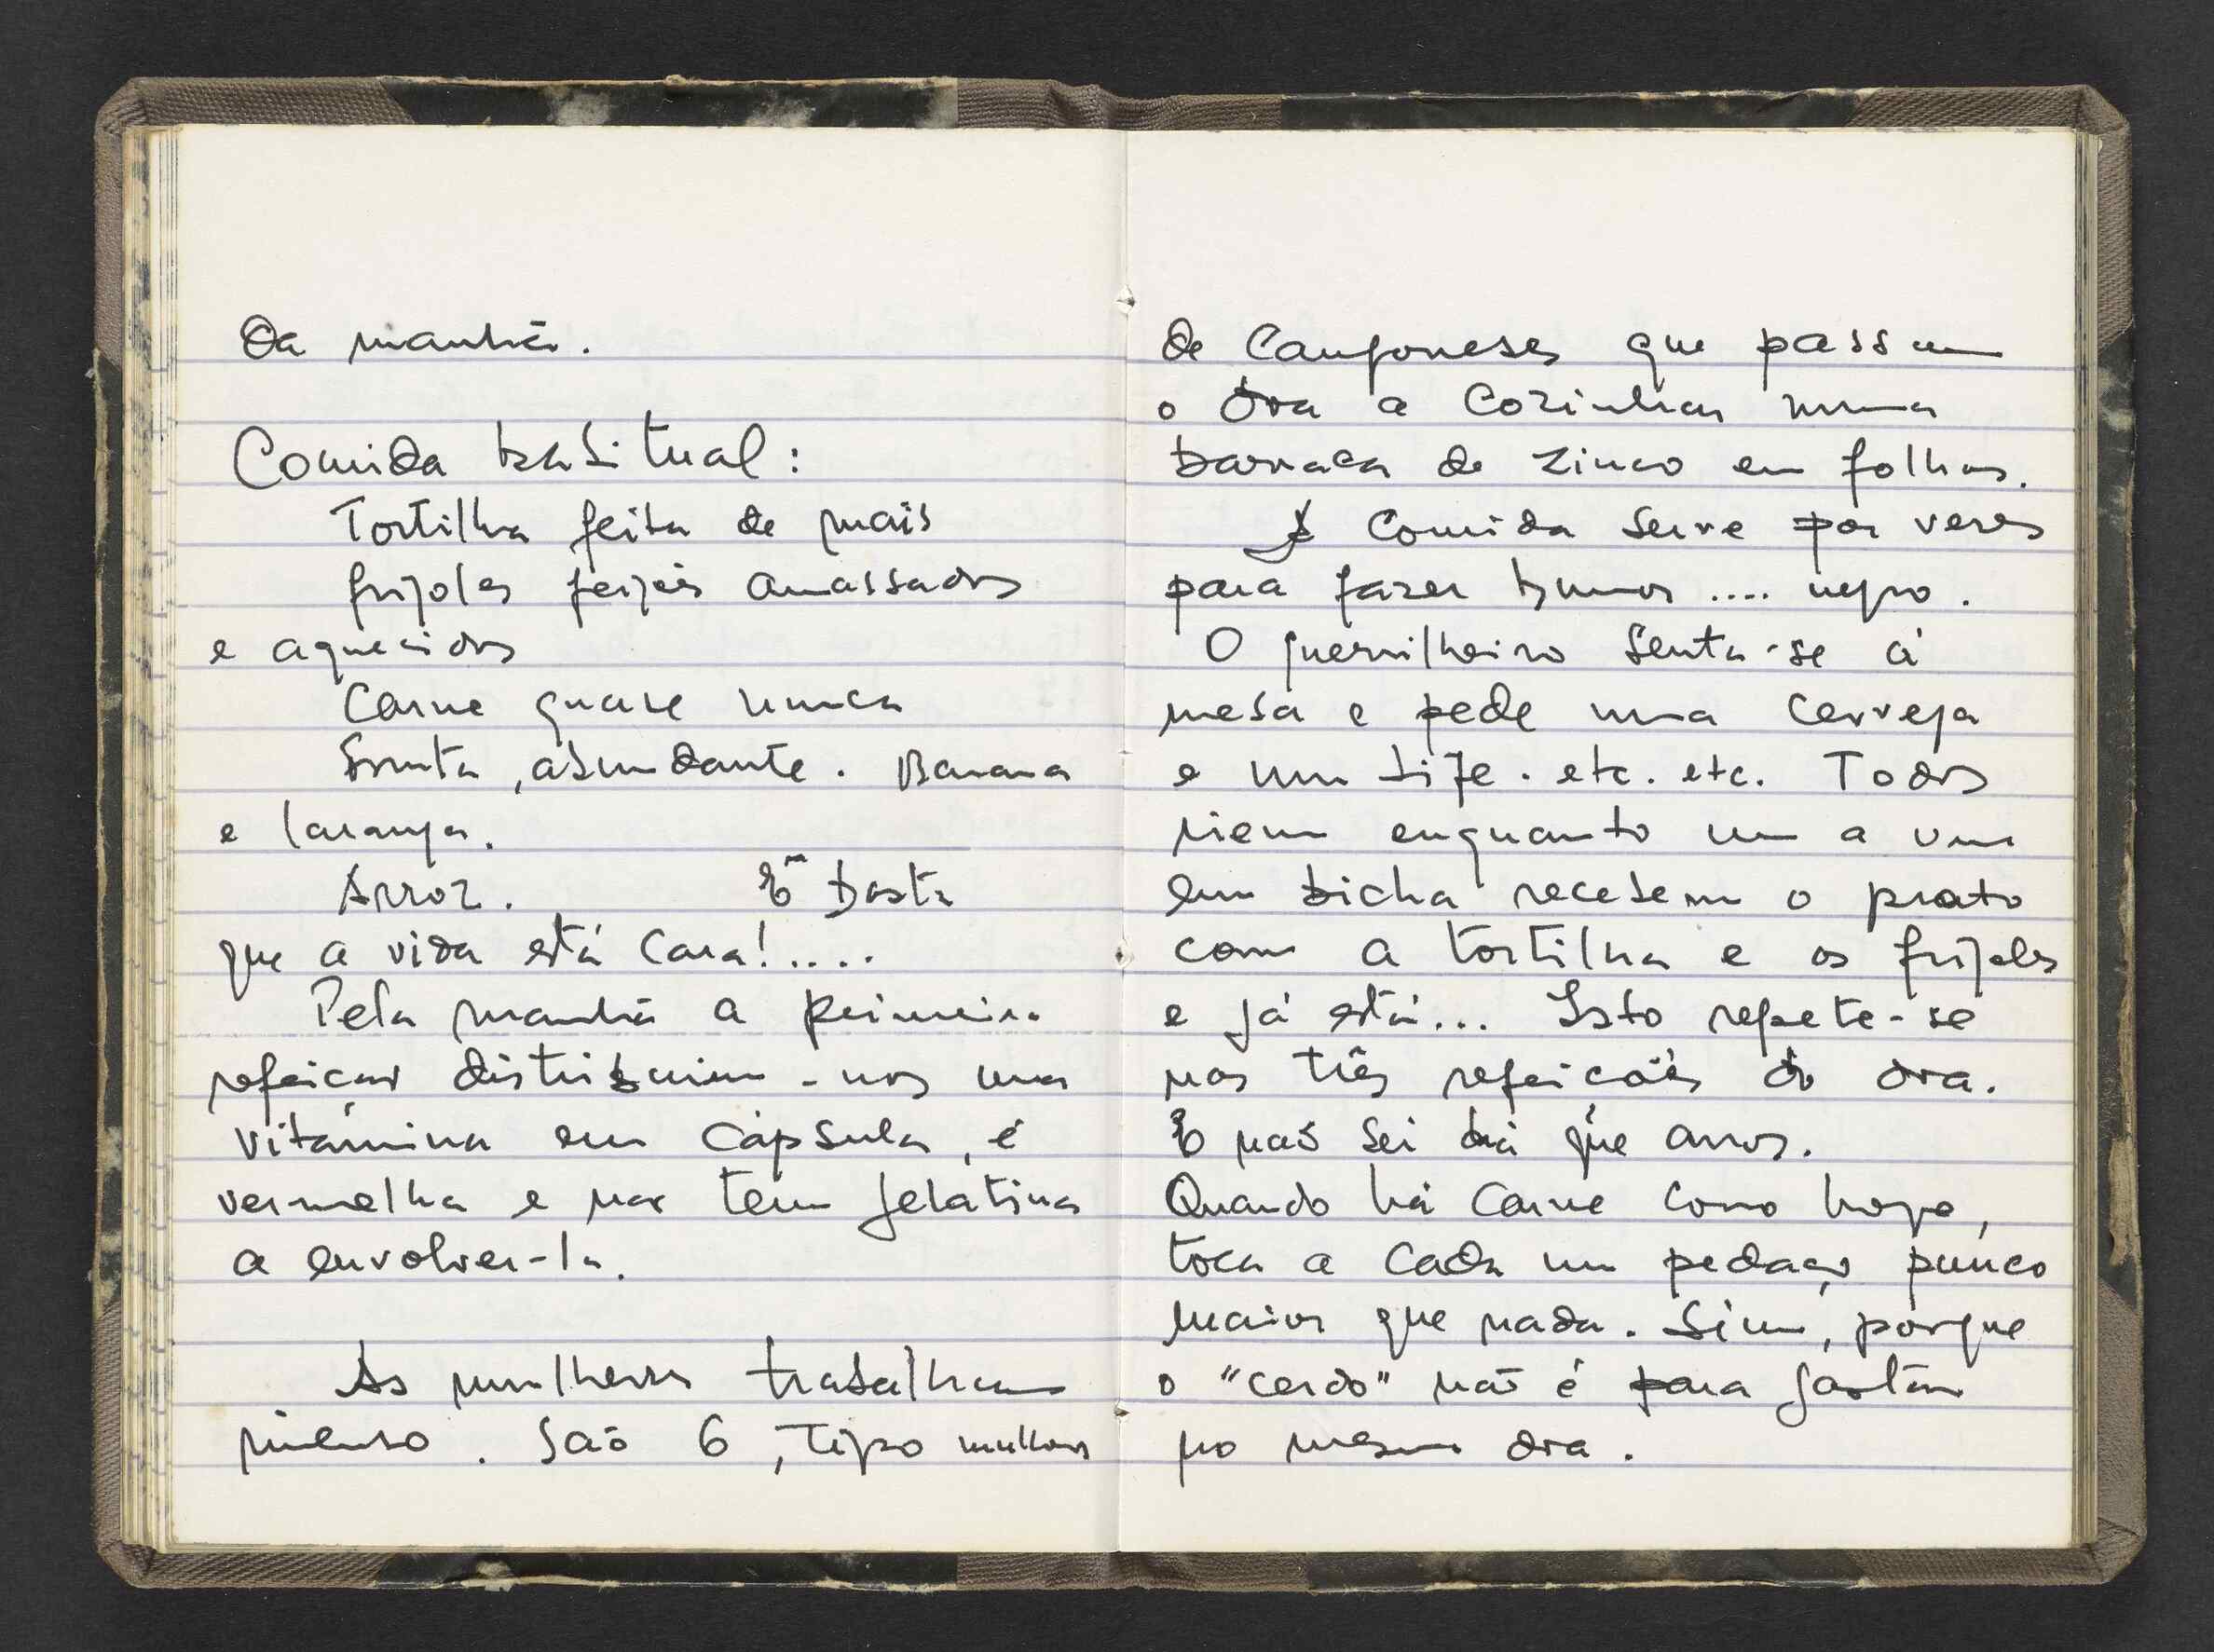 da manhã.
Comida habitual:
Tortilha feita de mais
frijoles feijões amassados
e aquecidos
Carne quase nunca
Fruta, abundante. Banana
e laranja.
Arroz. E basta
que a vida está cara!....
Pela manhã a primeira
refeição distribuiem-nos uma
vitámina em cápsula, é
vermelha e não tem gelatina
a envolver-la.
As mulheres trabalham
imenso. São 6, tipo mulheres
de Camponeses que passam
o dia a cozinhar numa
barraca de zinco em folhas.
A Comida serve por vezes
para fazer humor .... negro.
O guerrilheiro senta-se à
mesa e pede uma cerveja
e um bife. etc. etc. Todos
riem enquanto um a um
em bicha recebem o prato
com a tortilha e os frijoles
e já está... Isto repete-se
nas três refeições do dia.
E não sei há que anos.
Quando há carne como hoje,
toca a cada um pedaço pouco
maior que nada. Sim, porque
o "cerdo" não é para gastar
no mesmo dia.